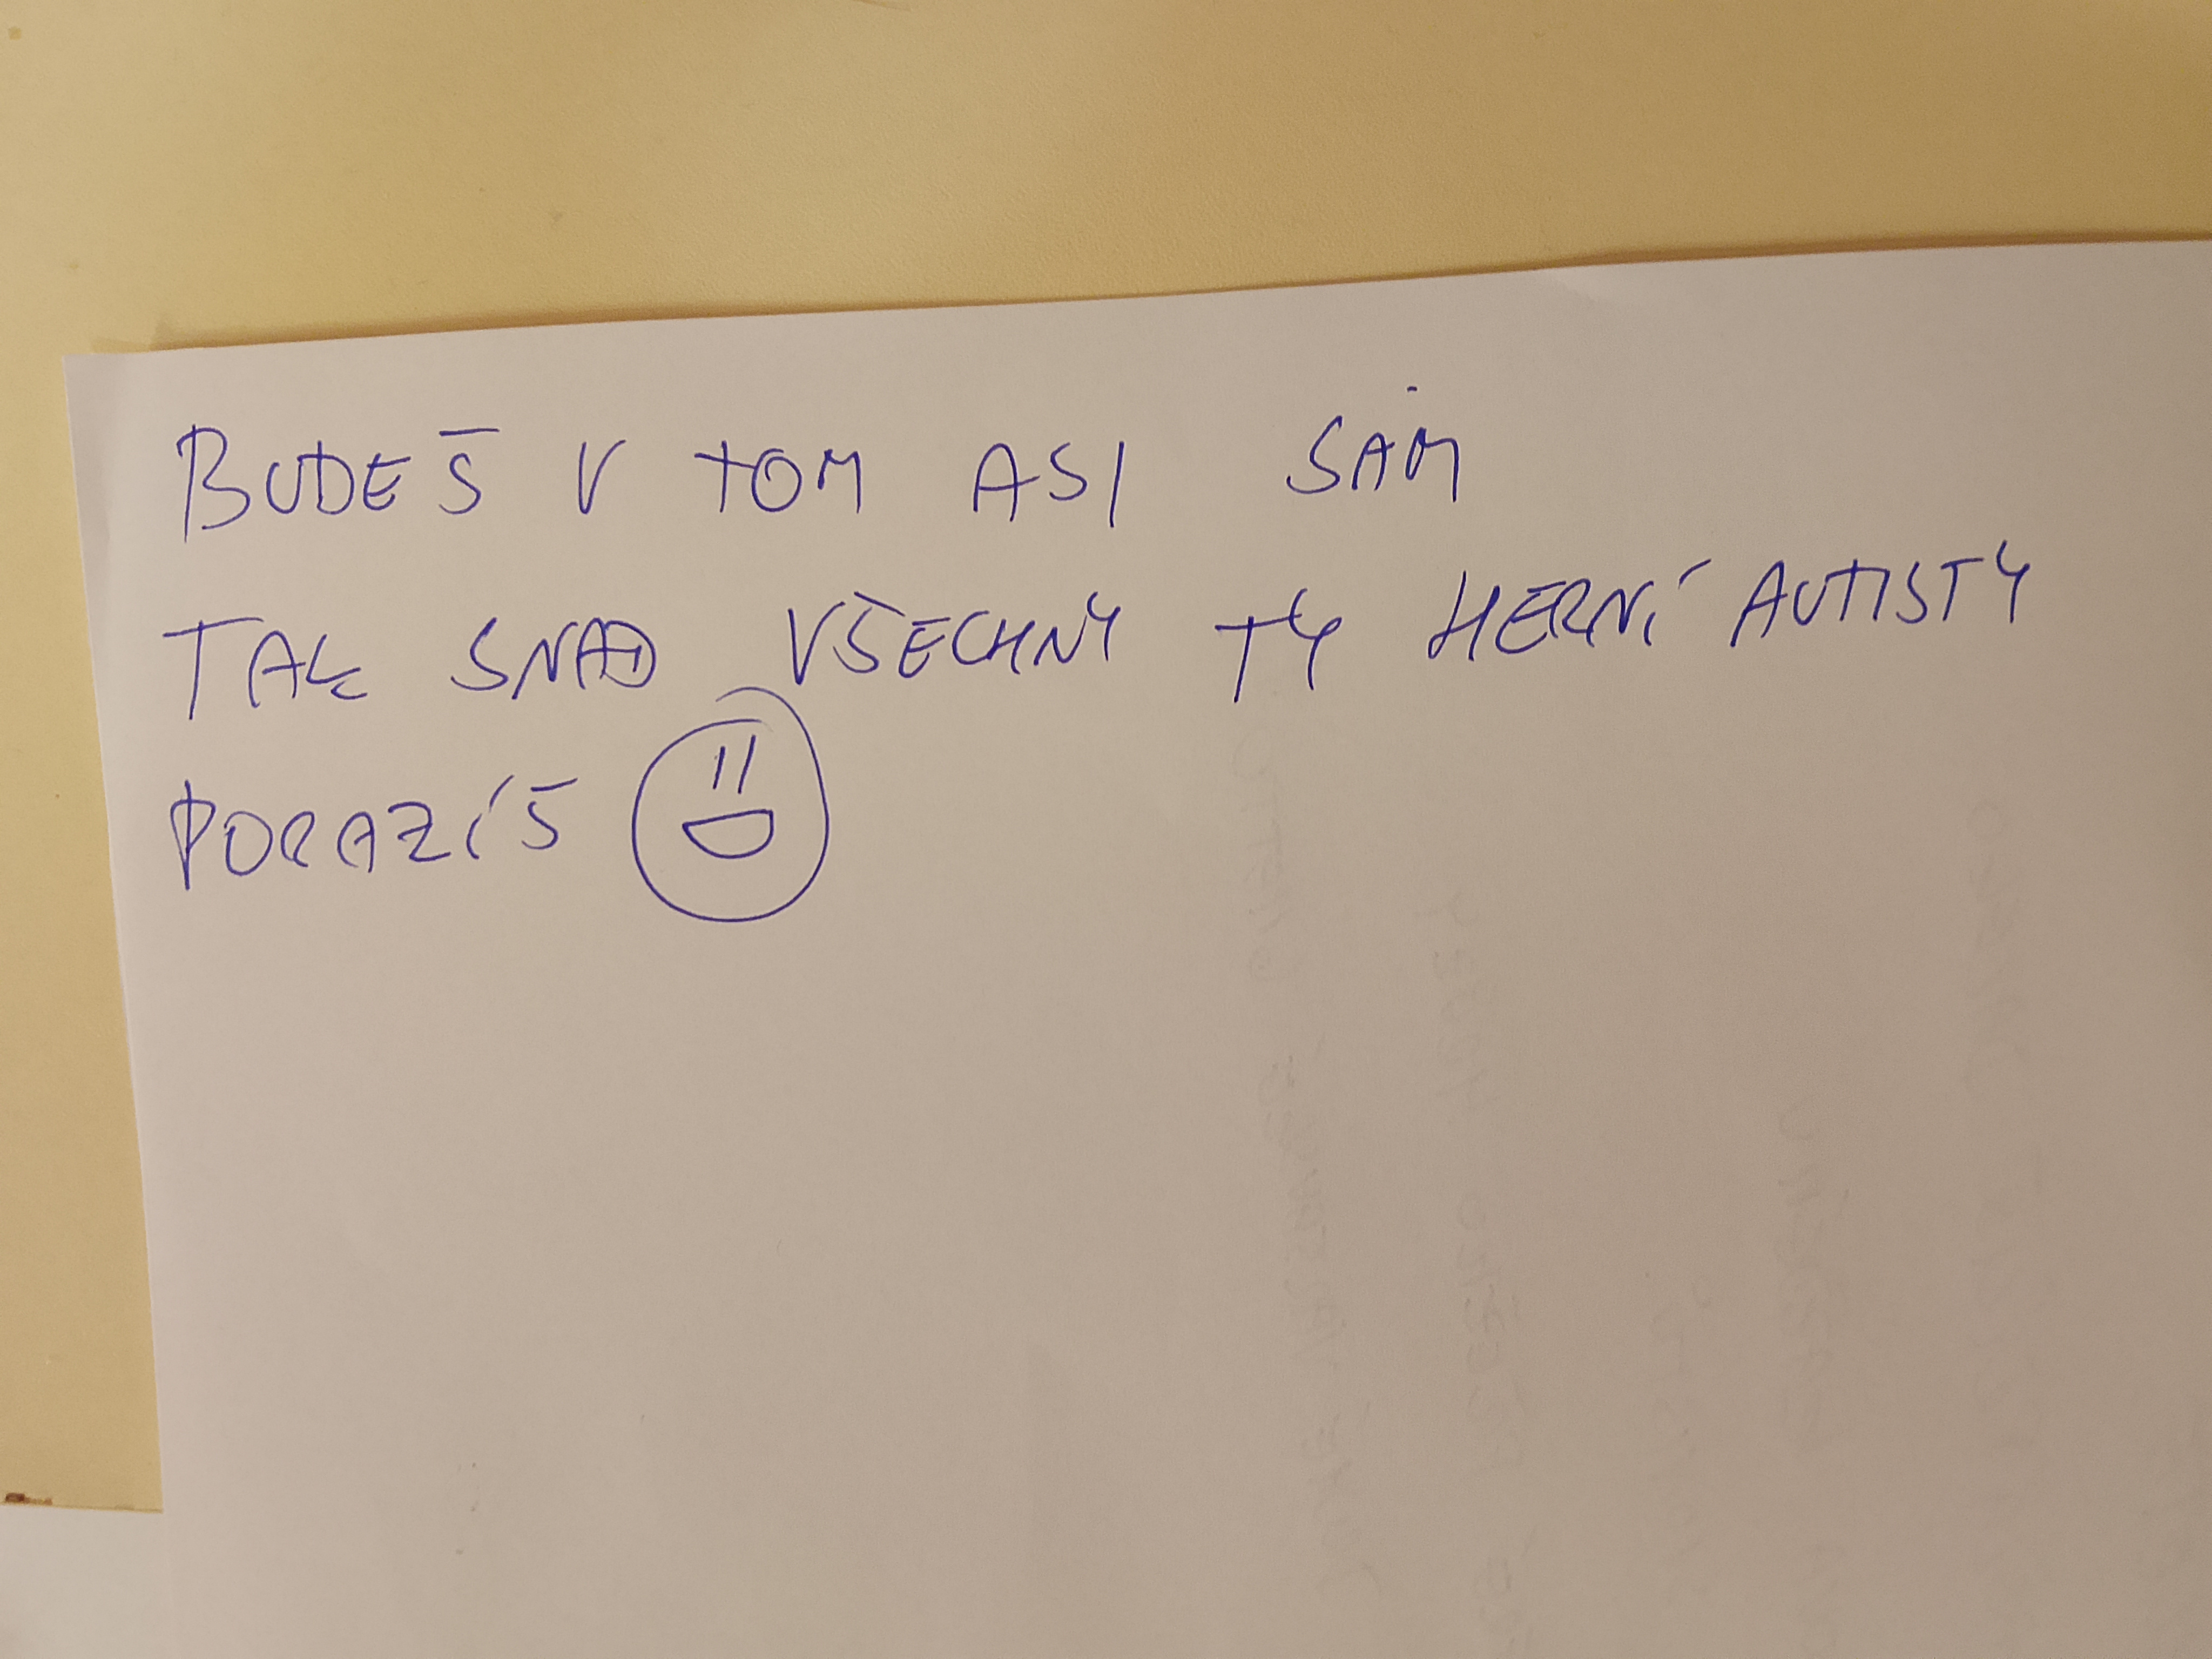 BUDEŠ V TOM ASI SÁM
TAK SNAD VŠECHNY TY HERNÍ AUTISTY
PORAZÍŠ